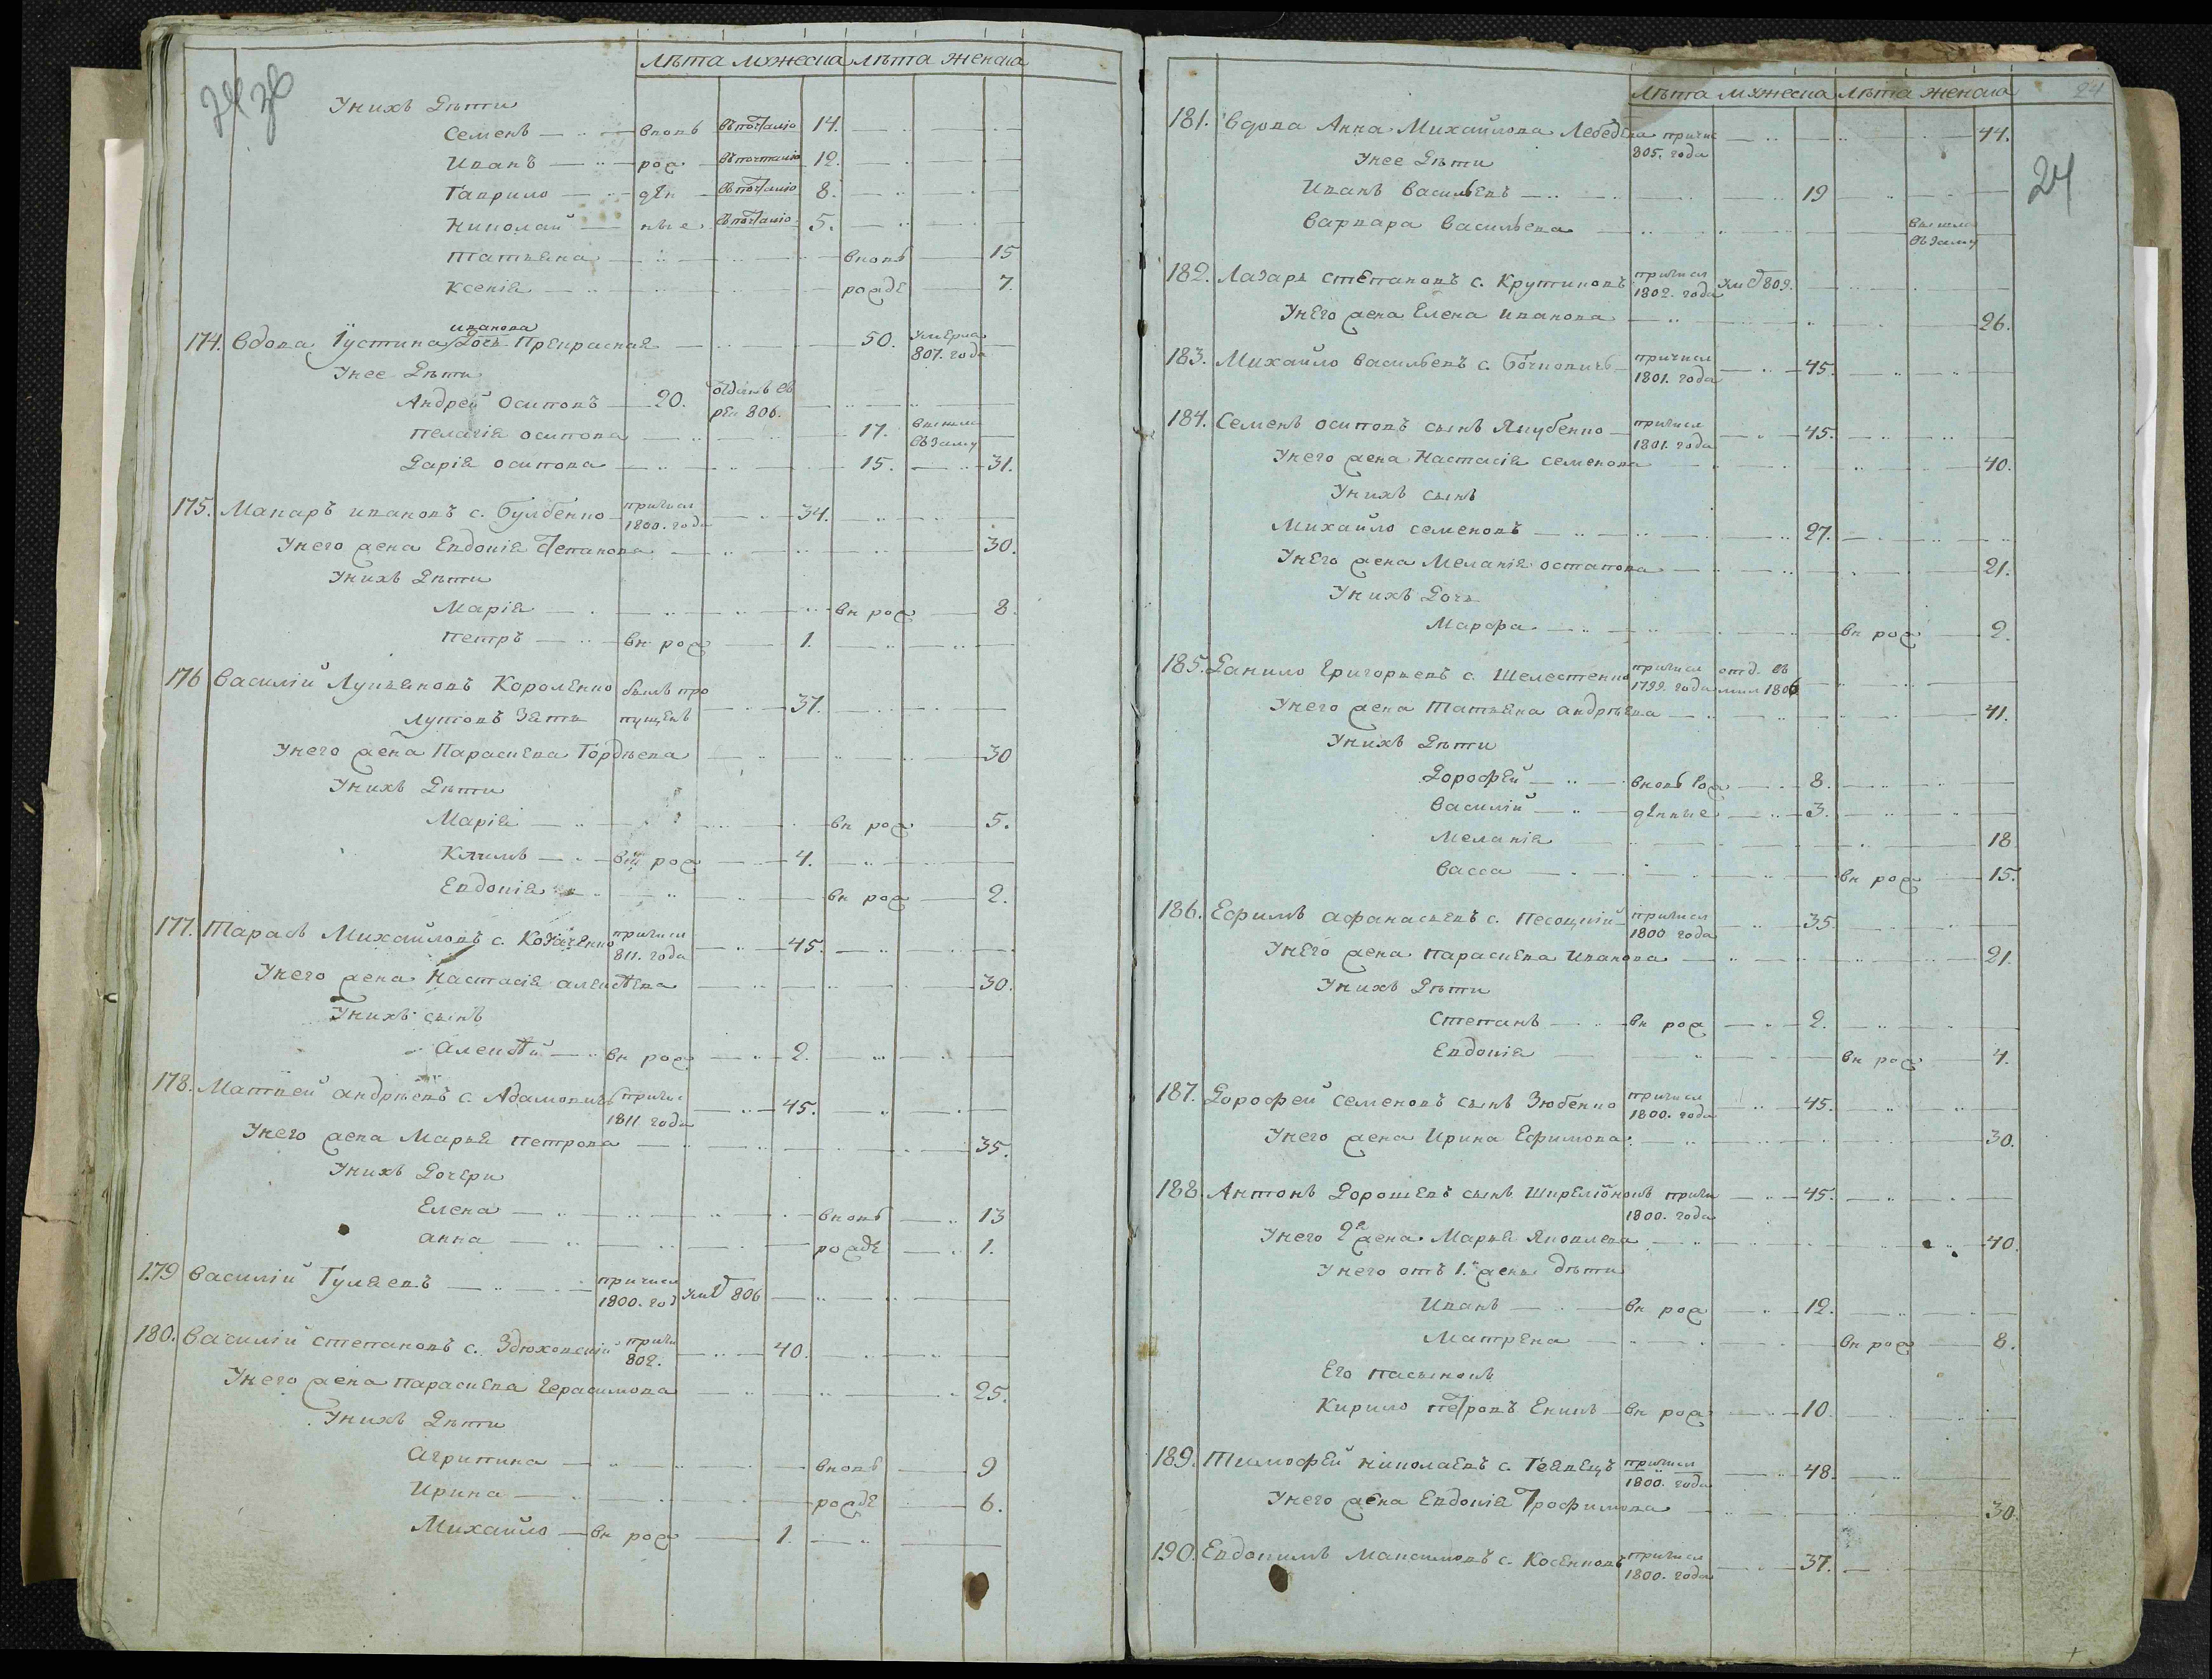 Лѣта мужеска Лѣта женска
У нихъ Дѣти
Семенъ вновь въ почталіо 14.
Иванъ рож въ почталіо 12.
Гаврило ден въ почталіо 8.
Николай ные въ почталіо 5.
Татьяна вновь 15
Ксенія рожде 7.
иванова
174. Вдова Іустина Дочь Прекрасная 50. умерла
807. года
У нее Дѣти
Андрей Осиповъ 20. отданъ въ
рек 806.
Пелагія осипова 17. вышла
въ заму
Дарія осипова 15. 31.
175. Макаръ ивановъ с. Булбенко причисл 34.
1800. года
У него жена Евдокія Степанова 30.
У нихъ Дѣти
Марія вн рож 8.
Петръ вн рож 1.
176 Василій Лукьяновъ Короленко былъ про 37.
Луповъ Зять пущенъ
У него жена Параскева Гордѣева 30
У нихъ Дѣти
Марія вн рож 5.
Климъ вн рож 4.
Евдокія вн рож 2.
177. Тарасъ Михайловъ с. Козаченко причисл 45.
811. года
У него жена Настасія алексѣева 30.
У нихъ сынъ
Алексѣй вн рож 2.
178. Матвей андрѣевъ с. Адамовичъ причис 45.
1811 года
У него жена Марья петрова 35.
У нихъ Дочери
Елена вновь 13
анна рожде 1.
179 Василій Гуляевъ причисл ум 806
1800. год
180. Василій степановъ с. Здюховскій причи 40.
802.
У него жена параскева Герасимова 25.
У нихъ Дѣти
Агрипина вновь 9
Ирина рожде 6.
Михайло вн рож 1.
Лѣта мужеска Лѣта женска 24
24
181. Вдова Анна Михайлова Лебедева причис 44.
805. года
У нее Дѣти
Иванъ Васильевъ 19
Варвара Васильева вышла
въ заму
182. Лазарь степановъ с. Крутиковъ причисл ум 809.
1802. года
У него жена Елена иванова 26.
183. Михайло Васильевъ с. Бочковичъ причисл 45.
1801. года
184. Семенъ осиповъ сынъ Якубенко причисл 45.
1801. года
У него жена Настасія семенова 40.
У нихъ сынъ
Михайло семеновъ 27.
У него жена Меланія остапова 21.
У нихъ Дочь
Марфа вн рож 2.
185. Данило Григорьевъ с. Шелестенко причисл отд. въ
1799. года мил 1806
У него жена Татьяна андрѣева 41.
У нихъ Дѣти
Дорофей вновь рож 8.
Василій денные 3.
Меланія 18
Васса вн рож 15.
186. Ефимъ афанасьевъ с. Песоцкій причисл 35.
1800 года
У него жена параскева Иванова 21.
У нихъ Дѣти
Степанъ вн рож 2.
Евдокія вн рож 4.
187. Дорофей семеновъ сынъ Зюбенко причисл 45.
1800. года
У него жена Ирина Ефимова 30.
188. Антонъ Дорошевъ сынъ причи 45.
1800. года
У него 2я жена Марья Яковлева 40.
У него отъ 1й жены дѣти
Иванъ вн рож 12.
Матрена вн рож 8.
Его пасынокъ
Кирило петровъ вн рож 10.
189. Тимофей николаевъ с. причисл 48.
1800. года
У него жена Евдокія Трофимова 30.
190. Евдокимъ Максимовъ с. Косенковъ причисл 37.
1800. года